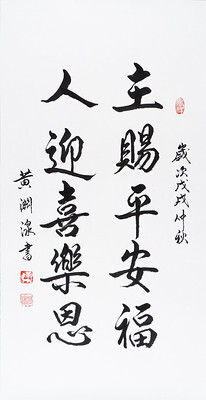 歲次戊戌仲秋
主賜平安福
人迎喜樂恩
黃淵泉書